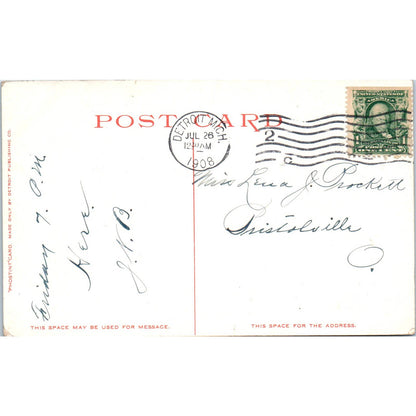 POST CARD
DETROIT, MICH.
JUL 26
12-AM
1908
2
C
UNITED STATES OF AMERICA
"PHOSTINT" CARD. MADE ONLY BY DETROIT PUBLISHING CO.
Friday 7 P.M
Here.
J.V.B.
Miss Lena J. Prockett
Bristolville
O
THIS SPACE MAY BE USED FOR MESSAGE.
THIS SPACE IS FOR THE ADDRESS.